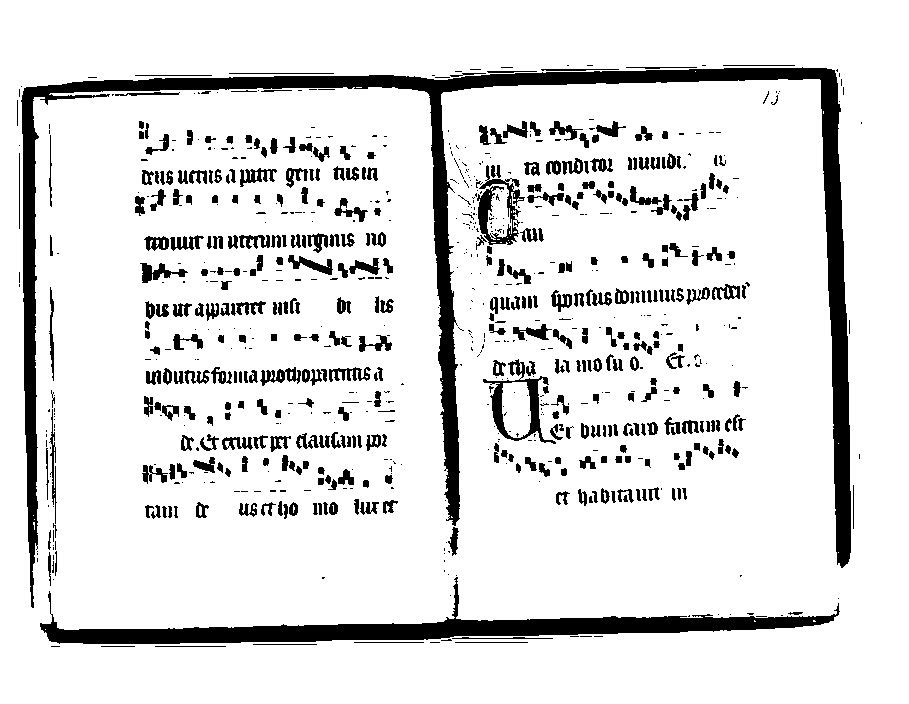 deus uerus a patre geni tus in
trouiit in uterum uirginis no
bis ut appareret uisi bi lis
indutus forma prothoparentis a
de. Et exiuit per clausam por
tam de us et ho mo lux et
13
ui ta conditor mundi.
Tan
quam sponsus dominus proceden
de tha la mo su o. Et.
Uer bum caro factum est
et habitauit in